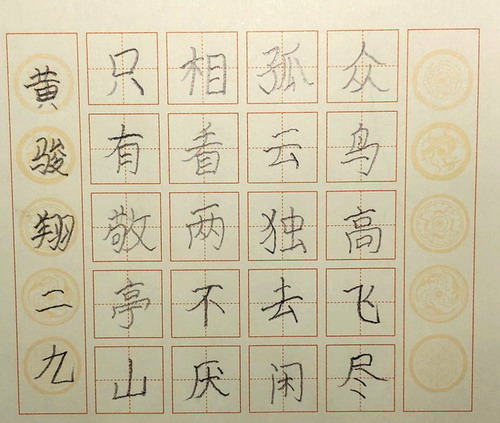 众鸟高飞尽
孤云独去闲
相看两不厌
只有敬亭山
黄骏翔二九